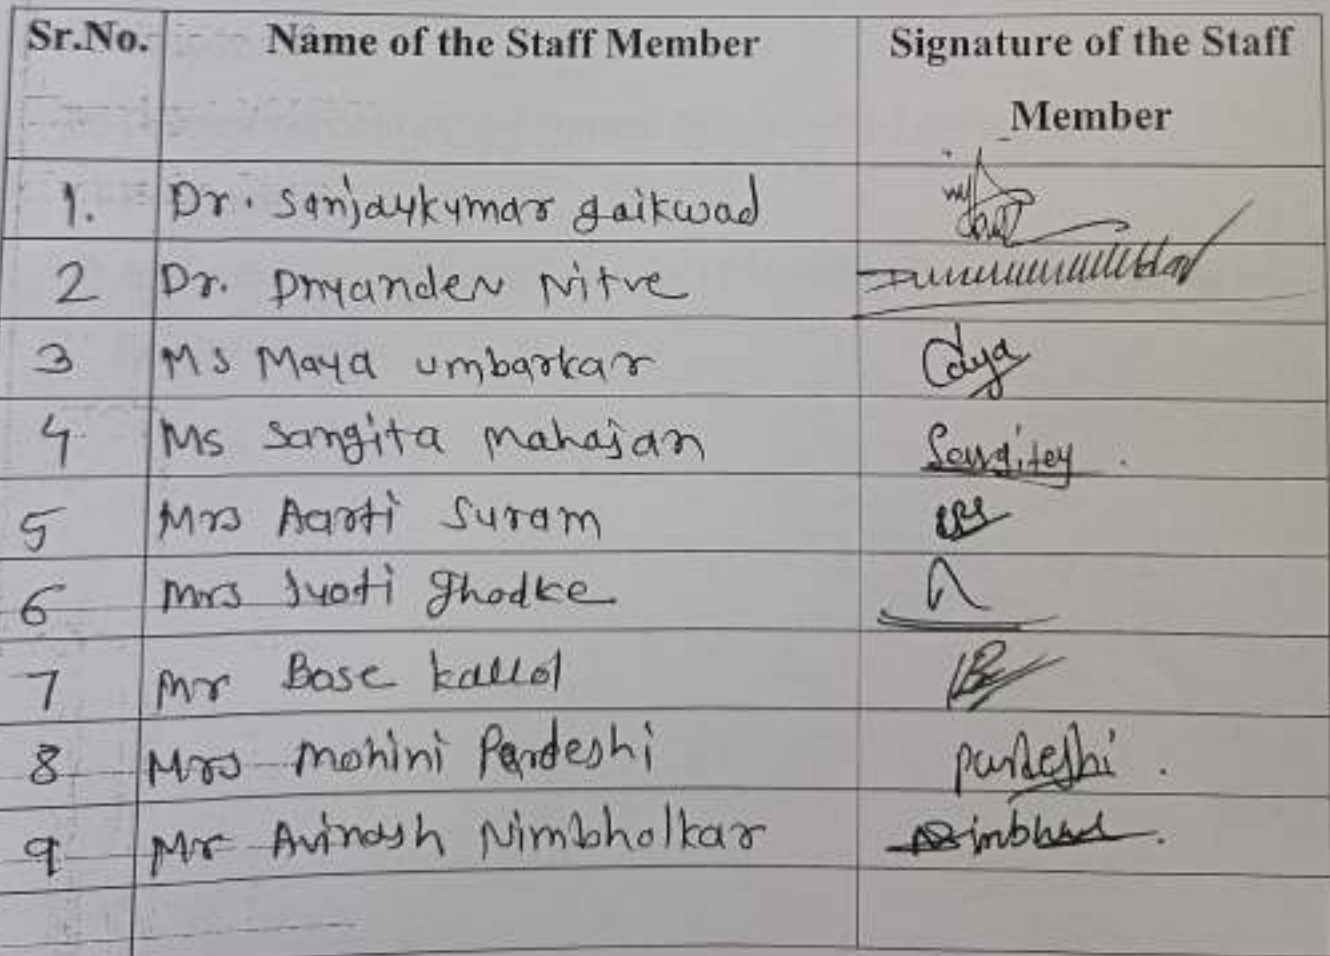 Sr.No. Name of the Staff Member Signature of the Staff Member
1. Dr. Sanjaykumar gaikwad
2 Dr. Nitve
3 Ms Maya umbarkar
4 Ms Sangita mahajan
5 Mrs Aarti Suram
6 Mrs Jyoti ghodke
7 Mr Bose kallol
8 Mrs Mohini Pardeshi pardeshi.
9 Mr Avinash Nimbholkar